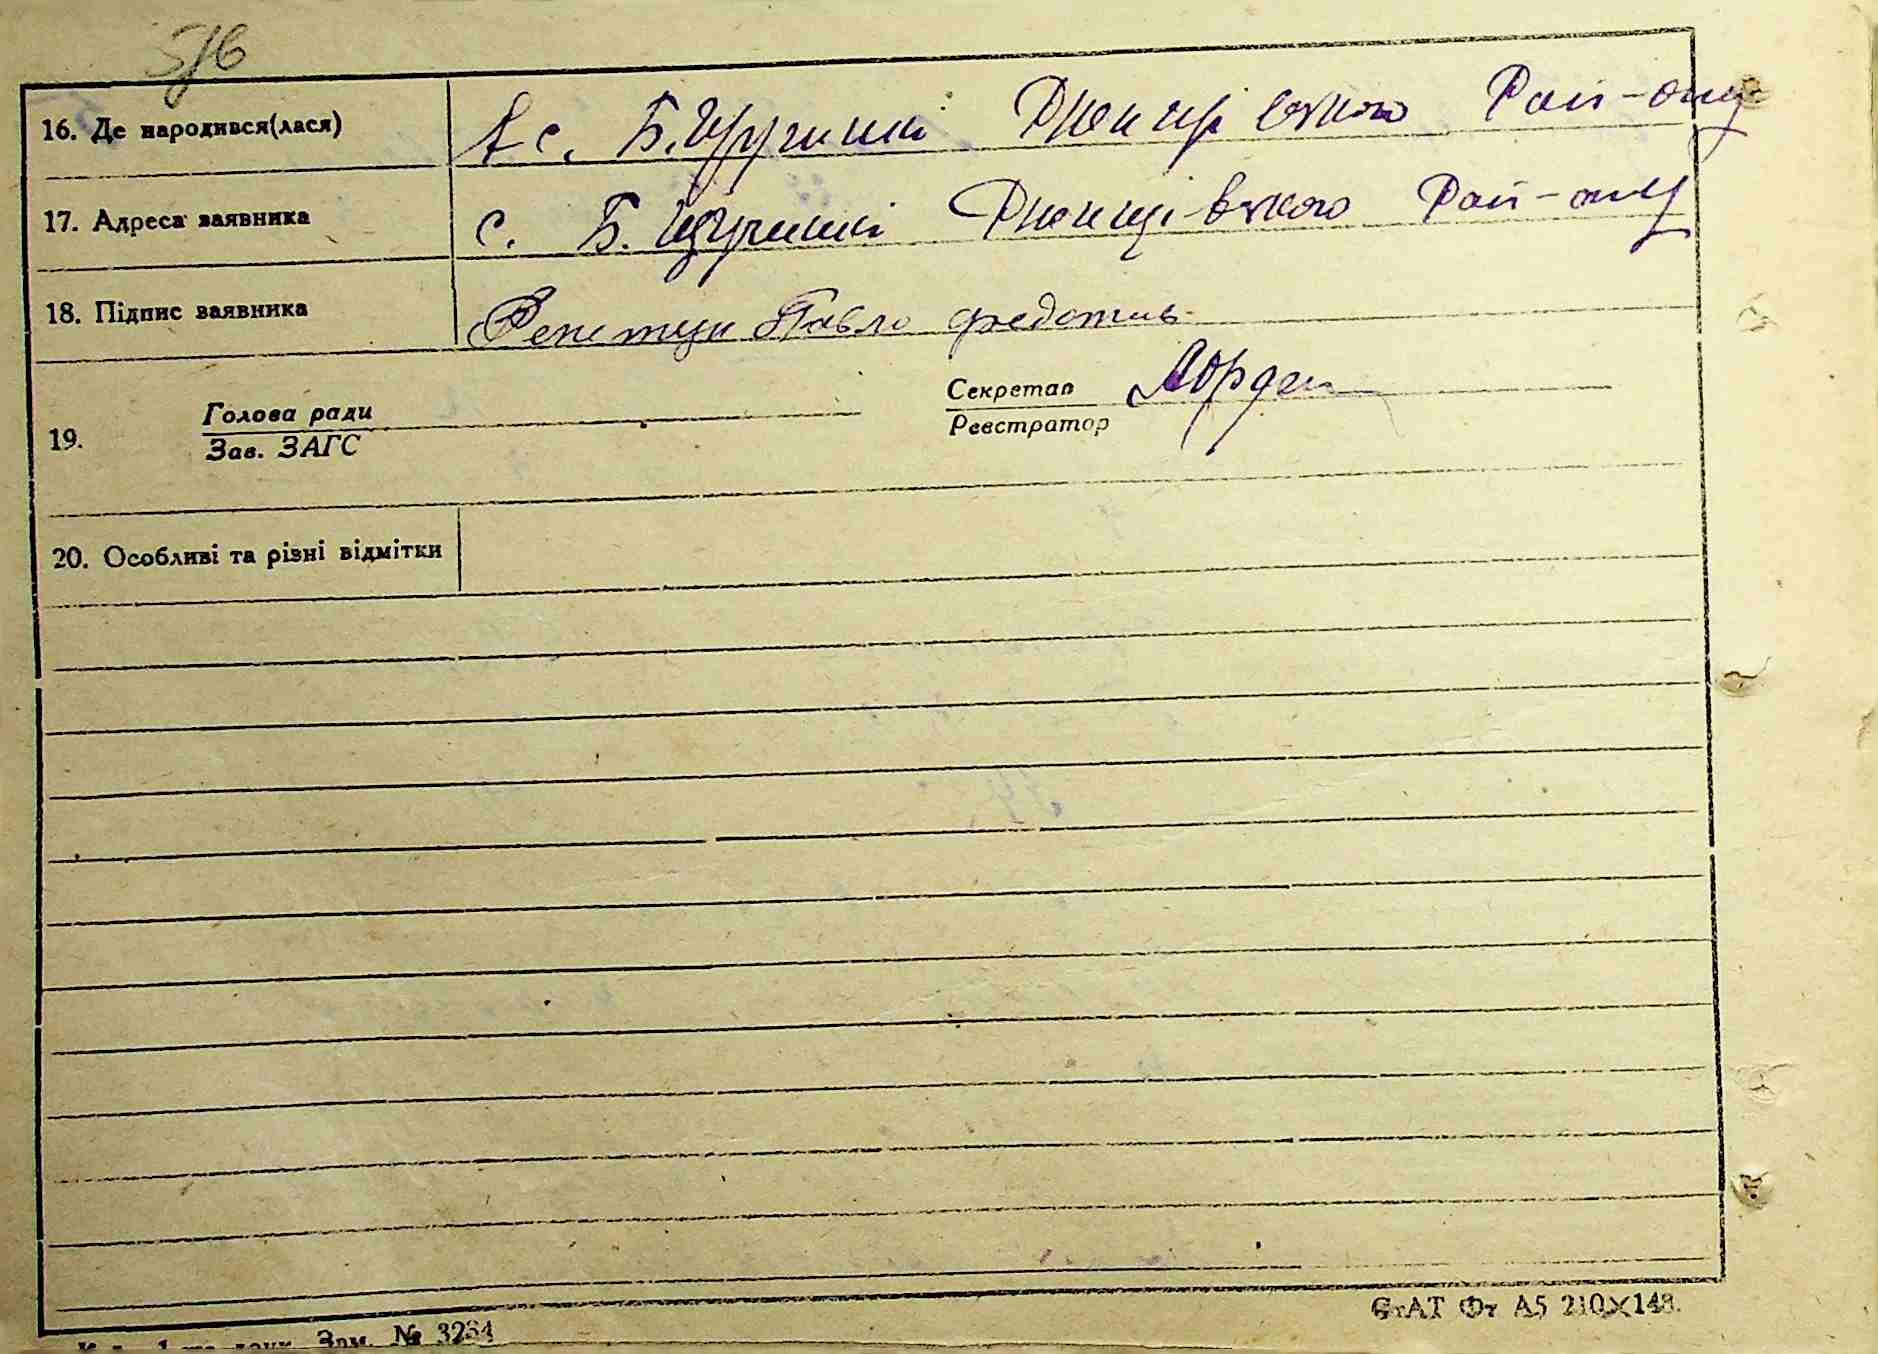 5/6
16. Де народився(лася)
с. Б. Цуринки Ржищівського Рай-ону
17. Адреса заявника
с. Б. Цуринки Ржищівського Рай-ону
18. Підпис заявника
Павло Федотів
19. Голова ради
Зав. ЗАГС
Секретар
Реєстратор
20. Особливі та різні відмітки
СтАТ Фт А5 210×148.
Зам. № 3264